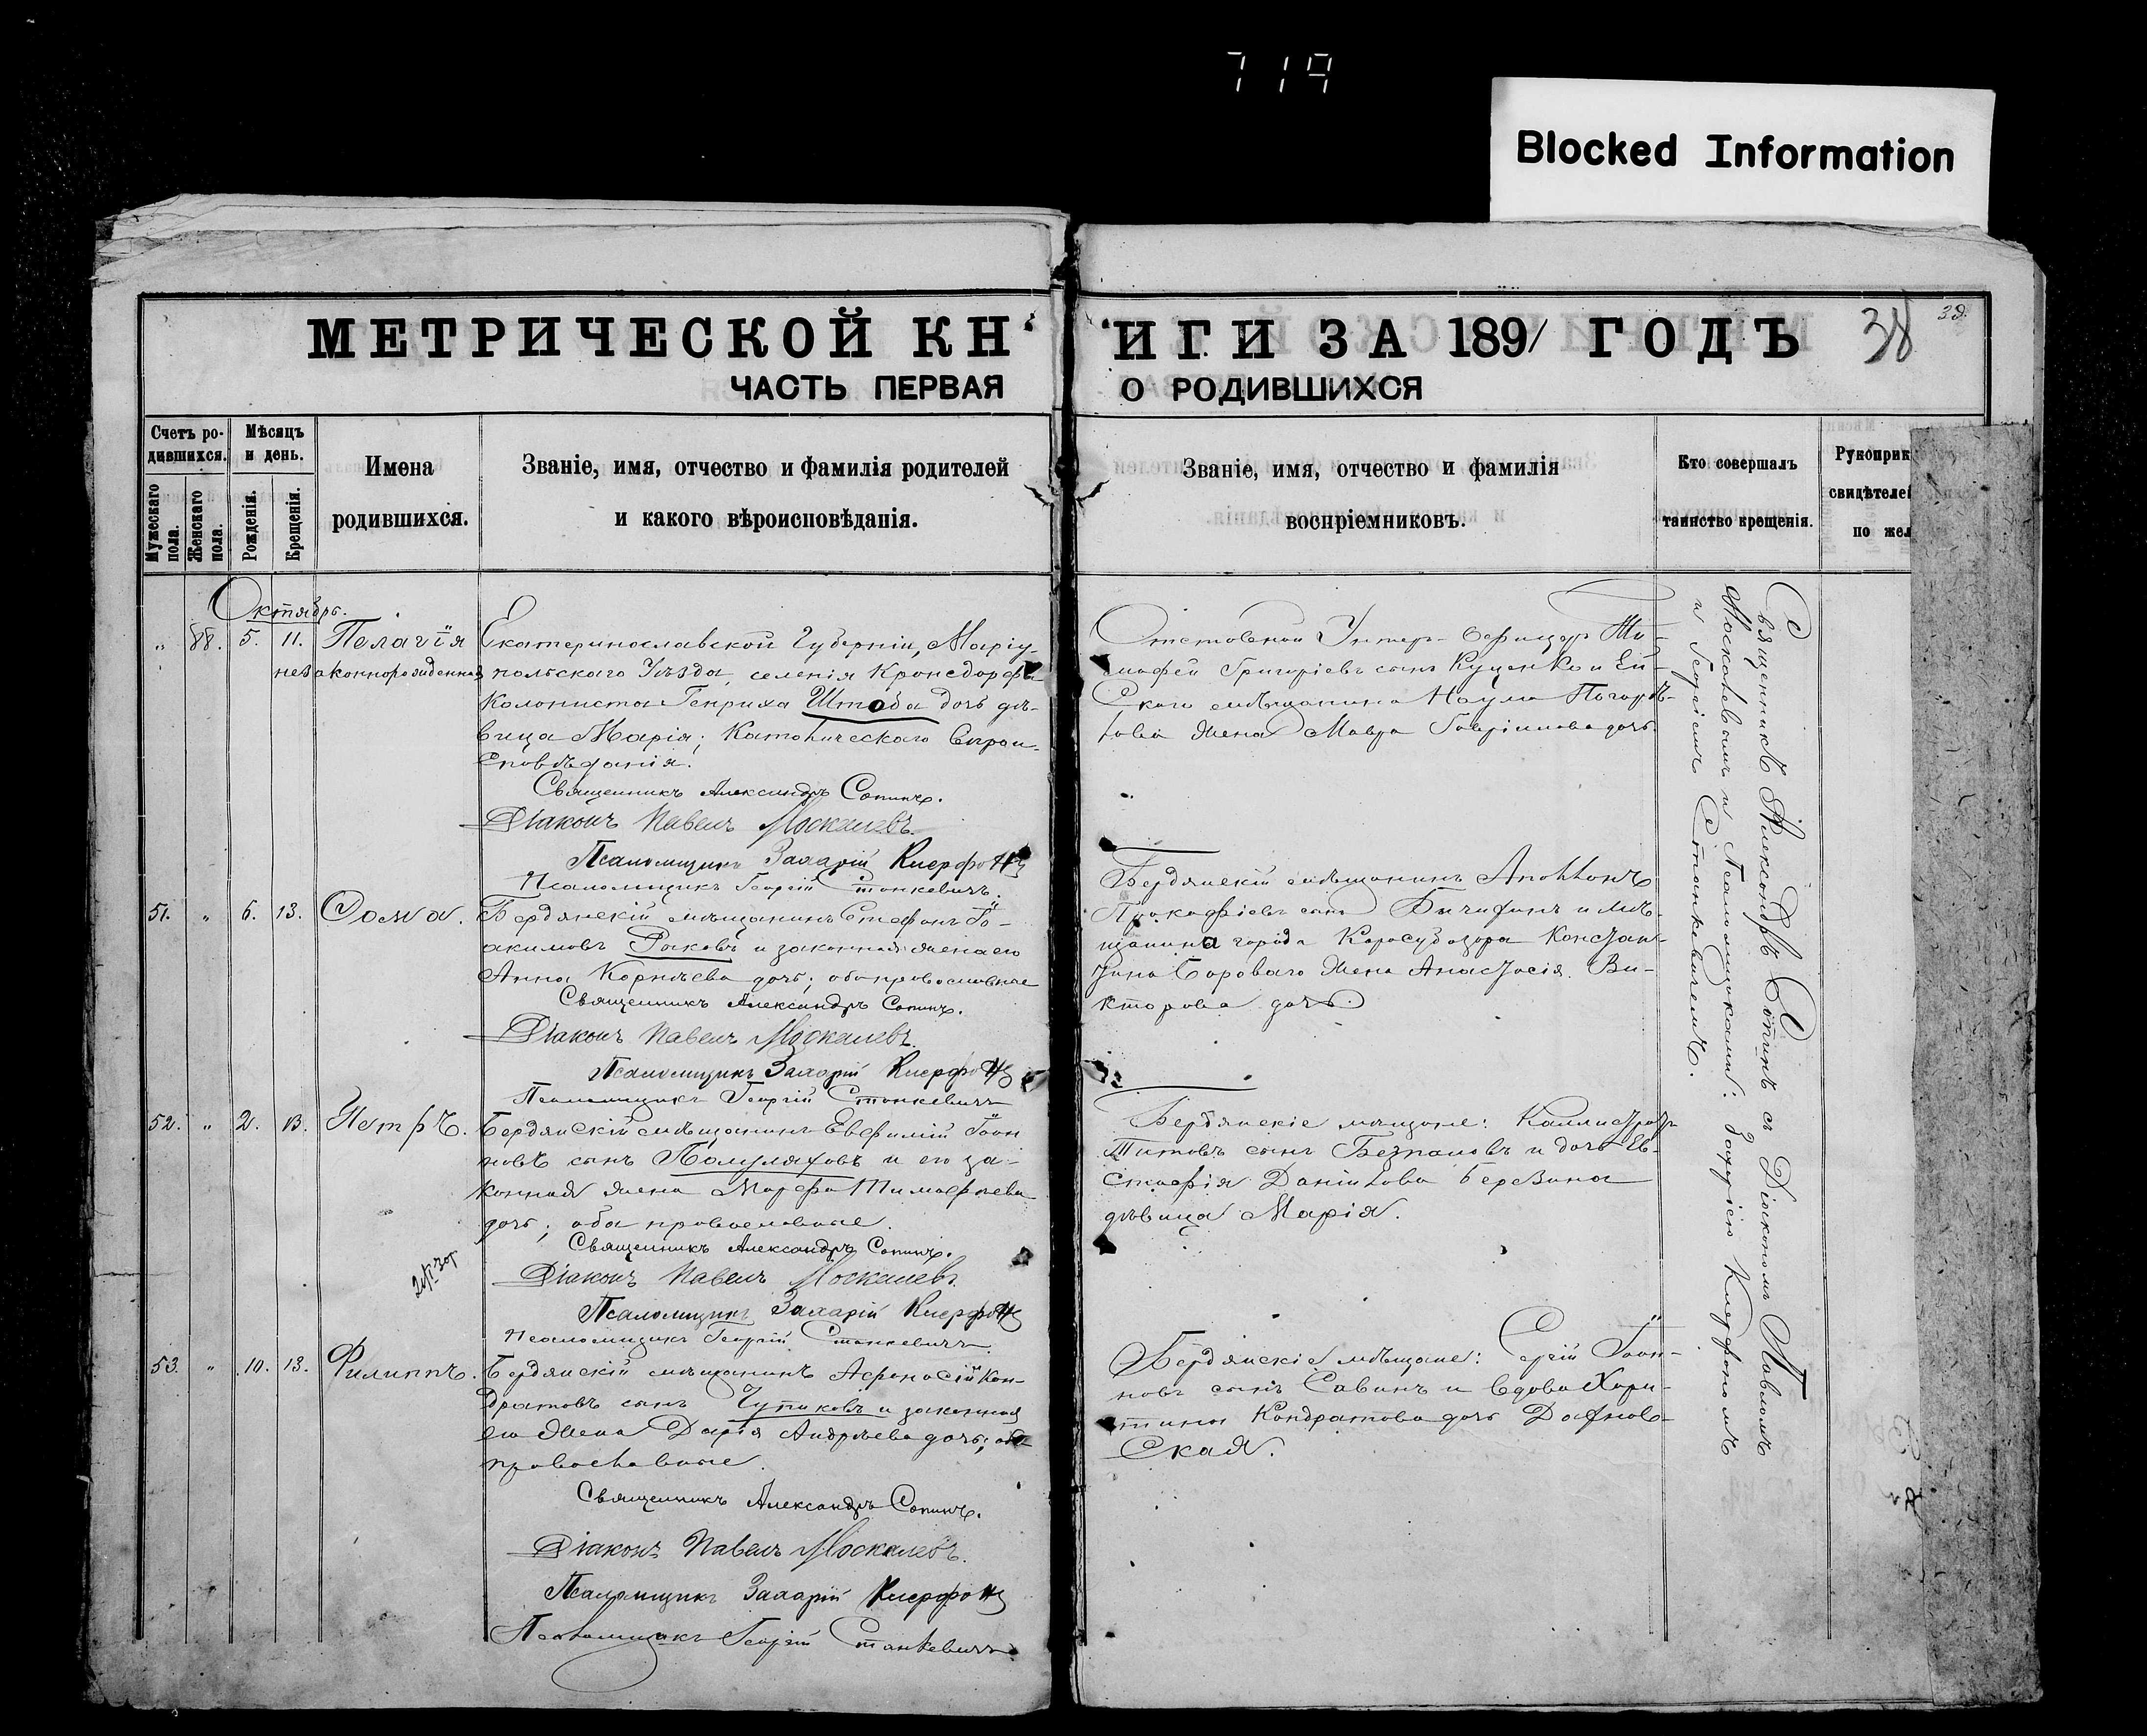 719
Blocked Information
МЕТРИЧЕСКОЙ КН
ИГИ ЗА 1891 ГОДЪ
38
ЧАСТЬ ПЕРВАЯ
О РОДИВШИХСЯ
Счетъ ро-
дившихся.
Мужескаго пола.
Женскаго пола.
Мѣсяцъ
и день.
Рожденія.
Крещенія.
Имена
родившихся.
Званіе, имя, отчество и фамилія родителей
и какого вѣроисповѣданія.
Званіе, имя, отчество и фамилія
воспріемниковъ.
Кто совершалъ
таинство крещенія.
Рукоприк
свидѣтелей
по жел
Октябрь.
" 88. 5. 11. Пелагія
незаконнорожденная
Екатеринославской Губерніи, Маріу-
польскаго Уѣзда, селенія Кронсдорфъ
Колониста Генриха Штаба дочь дѣ-
вица Марія; Католическаго вѣрои-
сповѣданія.
Священникъ Александръ Сопинъ.
Діаконъ Павелъ Москалевъ.
Псаломщикъ Захарій
Псаломщикъ Георгій Станкевичъ.
Отставной Унтер-Офицеръ Ти-
мофей Григоріевъ сынъ Куценко и Ей-
скаго мѣщанина Наума
жена Мавра Гавріилова дочь.
51. " 6. 13. Фома.
Бердянскій мѣщанинъ Стефанъ Іо-
акимовъ Рыковъ и законная жена его
Анна Корнѣева дочь; оба православные
Священникъ Александръ Сопинъ.
Діаконъ Павелъ Москалевъ.
Псаломщикъ Захарій
Псаломщикъ Георгій Станкевичъ
Бердянскій мѣщанинъ Аполлонъ
Прокофіевъ сынъ и мѣ-
щанина города Карасубазара Констан-
тина Бороваго жена Анастасія Ви-
кторова дочь.
52. " 2. 13. Петръ.
Бердянскій мѣщанинъ Евфимій Іоан
новъ сынъ Полуляховъ и его за-
конная жена Марфа Тимофѣева
дочь; оба православные.
Священникъ Александръ Сопинъ.
Діаконъ Павелъ Москалевъ.
Псаломщикъ Захарій
Псаломщикъ Георгій Станкевичъ.
Бердянскіе мѣщане: Каллистратъ
Титовъ сынъ Безпаловъ и дочь Ев-
стафія Данилова Березина
дѣвица Марія.
53. " 10. 13. Филиппъ.
Бердянскій мѣщанинъ Афонасій Кон-
дратовъ сынъ Чупиковъ и законная
его жена Дарія Андрѣева дочь; оба
православные.
Священникъ Александръ Сопинъ.
Діаконъ Павелъ Москалевъ.
Псаломщикъ Захарій
Псаломщикъ Георгій Станкевичъ
Бердянскіе мѣщане: Сергій Іоан-
новъ сынъ Савинъ и вдова Хари-
тина Кондратова дочь
ская.
Священникъ Александръ Сопинъ съ Діакономъ Павломъ
Москалевымъ и Псаломщиками: Захаріею
и Георгіемъ Станкевичемъ.